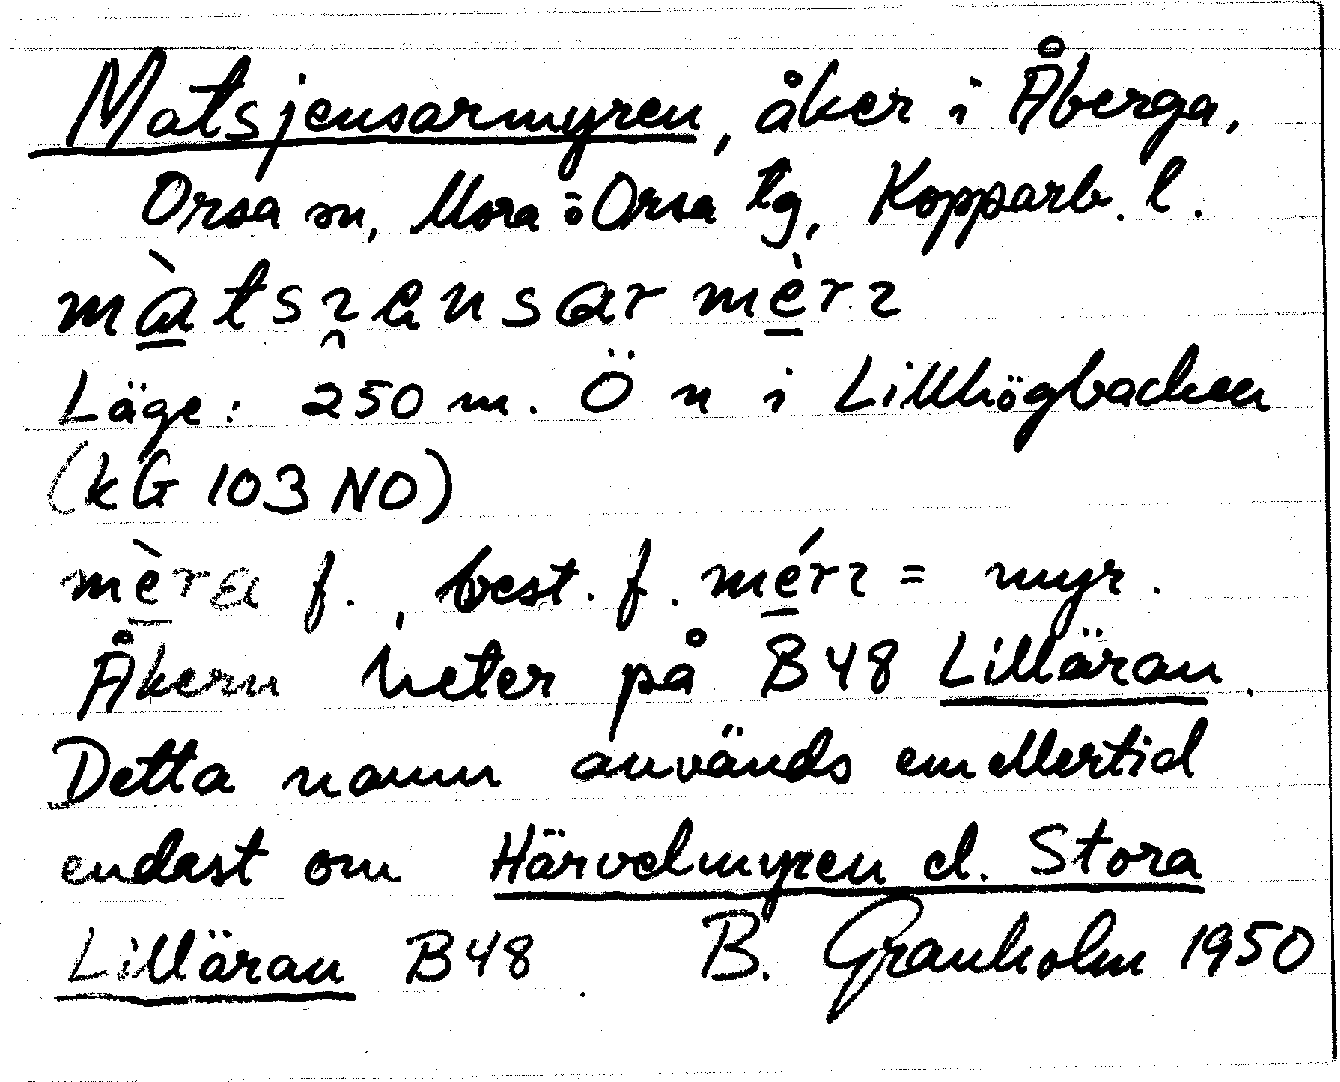 Matsjensarmyren, åker i Åberga,
Orsa sn, Mora o Orsa tg, Kopparb. l.
màtsɿ̯ensar mèrɿ
Läge: 250 m. Ö n i Lillhögbacken
(kG 103 NO)
mèra f., best. f. mérɿ = myr.
Åkern heter på B48 Lilläran.
Detta namn används emellertid
endast om Härvelmyren el. Stora
Lilläran B48 B. Granholm 1950